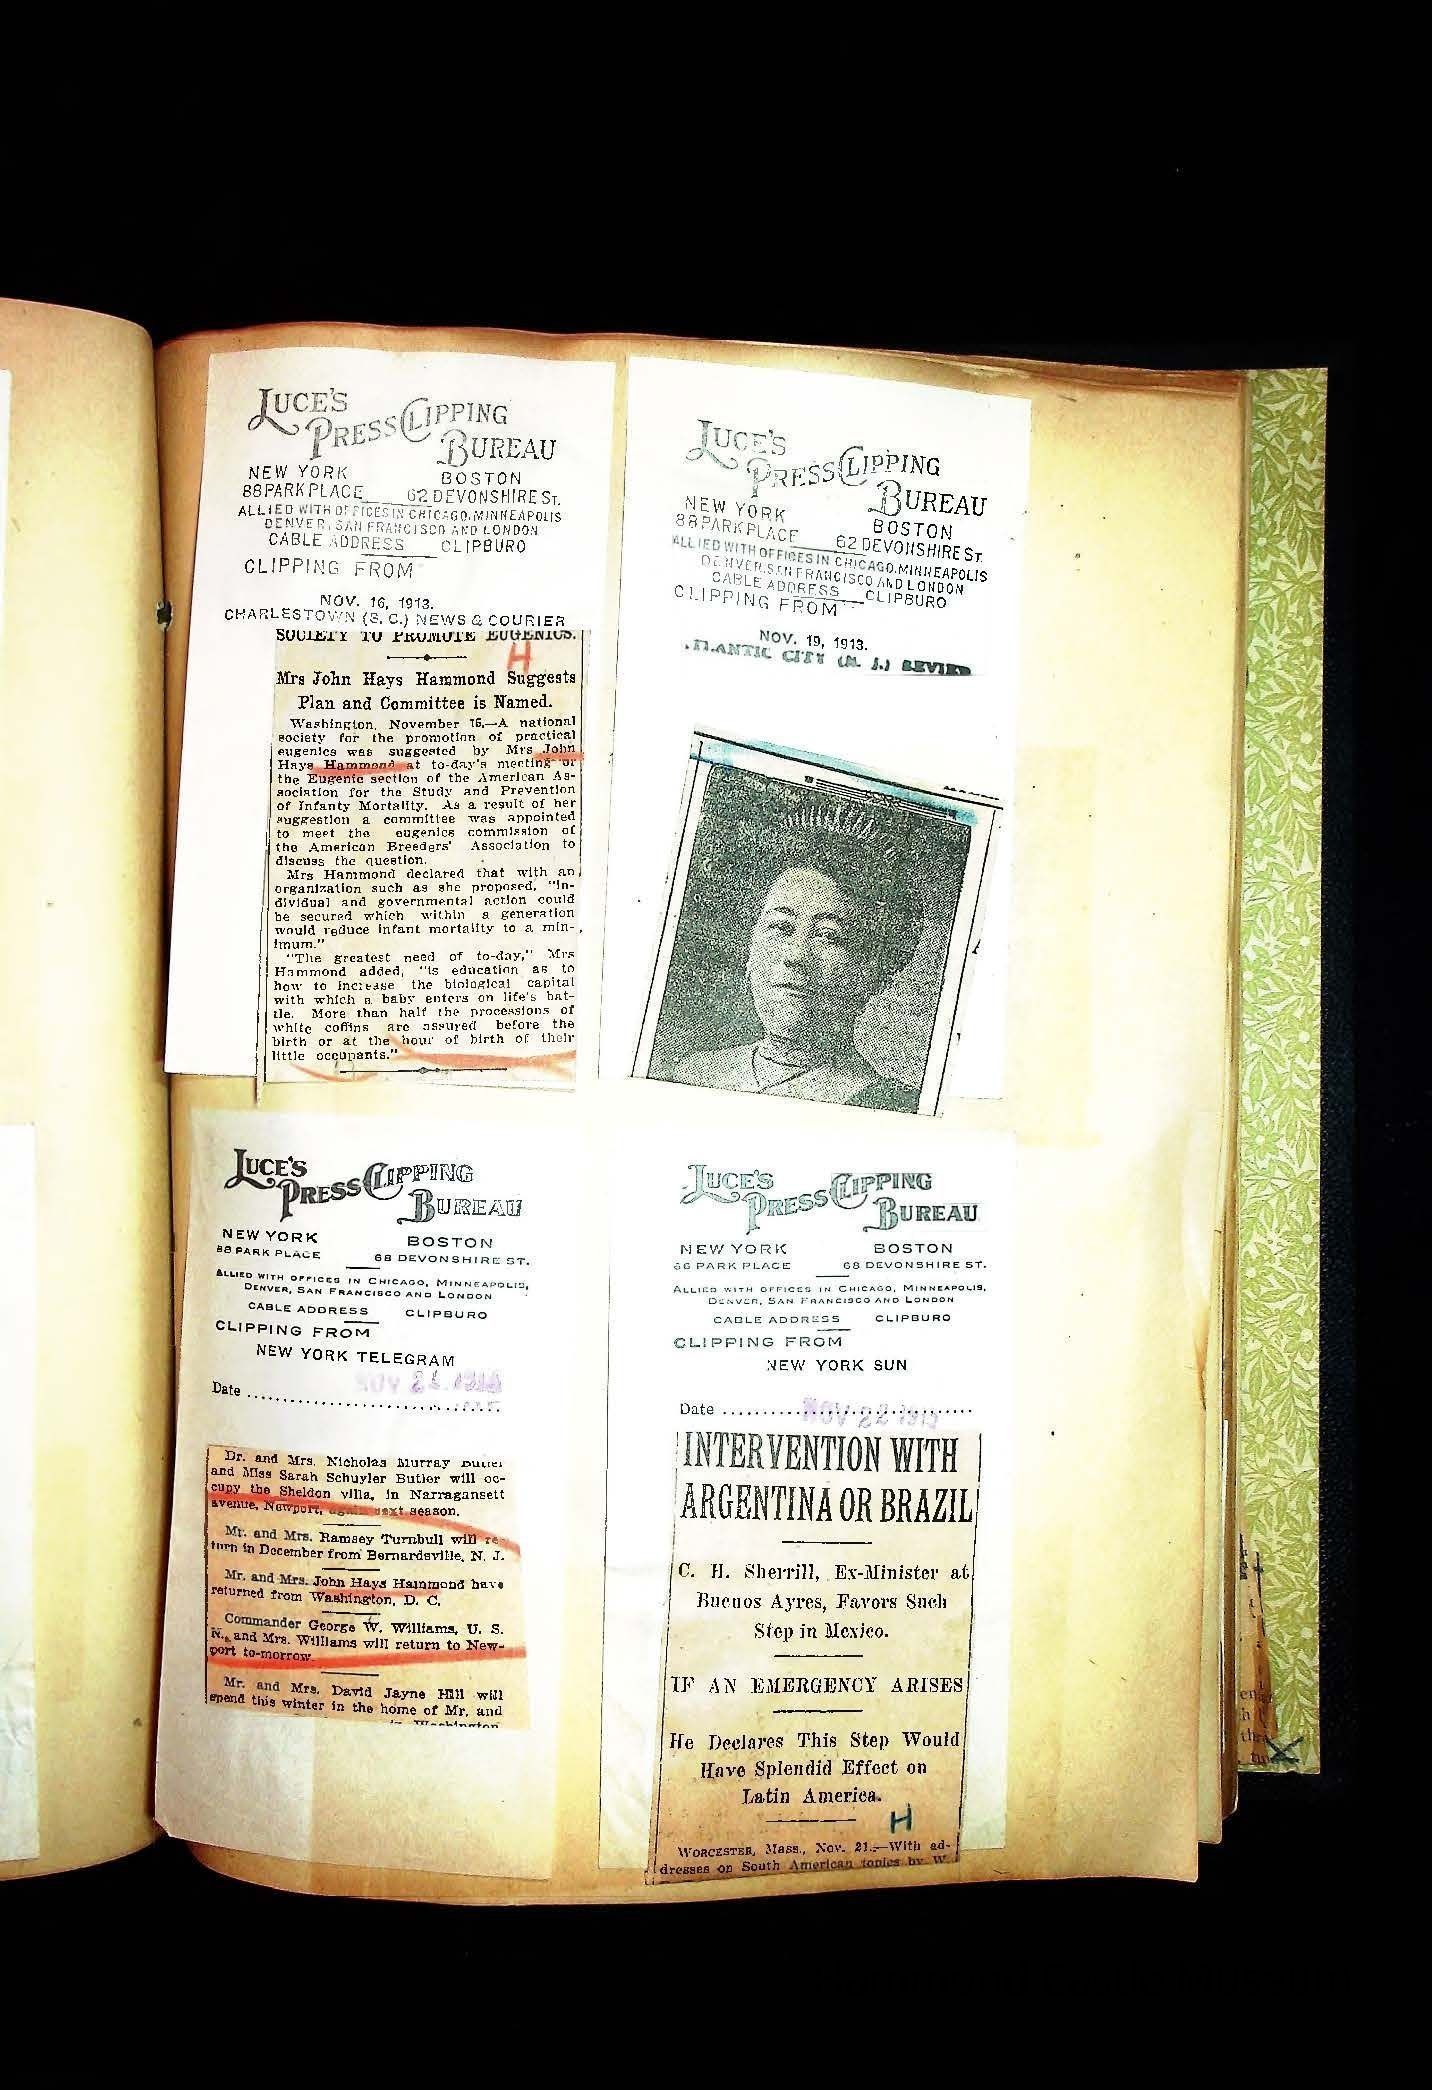 LUCE'S
PRESS CLIPPING
BUREAU
NEW YORK BOSTON
88 PARK PLACE 62 DEVONSHIRE ST.
ALLIED WITH OFFICES IN CHICAGO, MINNEAPOLIS
DENVER, SAN FRANCISCO AND LONDON
CABLE ADDRESS CLIPBURO
CLIPPING FROM
NOV. 16, 1913.
CHARLESTOWN (S. C.) NEWS & COURIER
SOCIETY TO PROMOTE EUGENICS.
H
Mrs John Hays Hammond Suggests
Plan and Committee is Named.
Washington, November 16.—A national
society for the promotion of practical
eugenics was suggested by Mrs John
Hays Hammond at to-day's meeting of
the Eugenic section of the American As-
sociation for the Study and Prevention
of Infanty Mortality. As a result of her
suggestion a committee was appointed
to meet the eugenics commission of
the American Breeders' Association to
discuss the question.
Mrs Hammond declared that with an
organization such as she proposed, "in-
dividual and governmental action could
be secured which within a generation
would reduce infant mortality to a min-
imum."
"The greatest need of to-day," Mrs
Hammond added, "is education as to
how to increase the biological capital
with which a baby enters on life's bat-
tle. More than half the processions of
white coffins are assured before the
birth or at the hour of birth of their
little occupants."
LUCE'S
PRESS CLIPPING
BUREAU
NEW YORK BOSTON
88 PARK PLACE 62 DEVONSHIRE ST.
ALLIED WITH OFFICES IN CHICAGO, MINNEAPOLIS
DENVER, SAN FRANCISCO AND LONDON
CABLE ADDRESS CLIPBURO
CLIPPING FROM
NOV. 19, 1913.
ATLANTIC CITY (N. J.) REVIEW
LUCE'S
PRESS CLIPPING
BUREAU
NEW YORK BOSTON
88 PARK PLACE 68 DEVONSHIRE ST.
ALLIED WITH OFFICES IN CHICAGO, MINNEAPOLIS,
DENVER, SAN FRANCISCO AND LONDON
CABLE ADDRESS CLIPBURO
CLIPPING FROM
NEW YORK TELEGRAM
Date NOV
Dr. and Mrs. Nicholas Murray Butler
and Miss Sarah Schuyler Butler will oc-
cupy the Sheldon villa, in Narragansett
avenue, Newport, again next season.
Mr. and Mrs. Ramsey Turnbull will re-
turn in December from Bernardsville, N. J.
Mr. and Mrs. John Hays Hammond have
returned from Washington, D. C.
Commander George W. Williams, U. S.
N., and Mrs. Williams will return to New-
port to-morrow.
Mr. and Mrs. David Jayne Hill will
spend this winter in the home of Mr. and
in Washington
LUCE'S
PRESS CLIPPING
BUREAU
NEW YORK BOSTON
66 PARK PLACE 68 DEVONSHIRE ST.
ALLIED WITH OFFICES IN CHICAGO, MINNEAPOLIS,
DENVER, SAN FRANCISCO AND LONDON
CABLE ADDRESS CLIPBURO
CLIPPING FROM
NEW YORK SUN
Date NOV 22 1913
INTERVENTION WITH
ARGENTINA OR BRAZIL
C. H. Sherrill, Ex-Minister at
Buenos Ayres, Favors Such
Step in Mexico.
IF AN EMERGENCY ARISES
He Declares This Step Would
Have Splendid Effect on
Latin America.
H
WORCESTER, Mass., Nov. 21.—With ad-
dresses on South American topics by W.